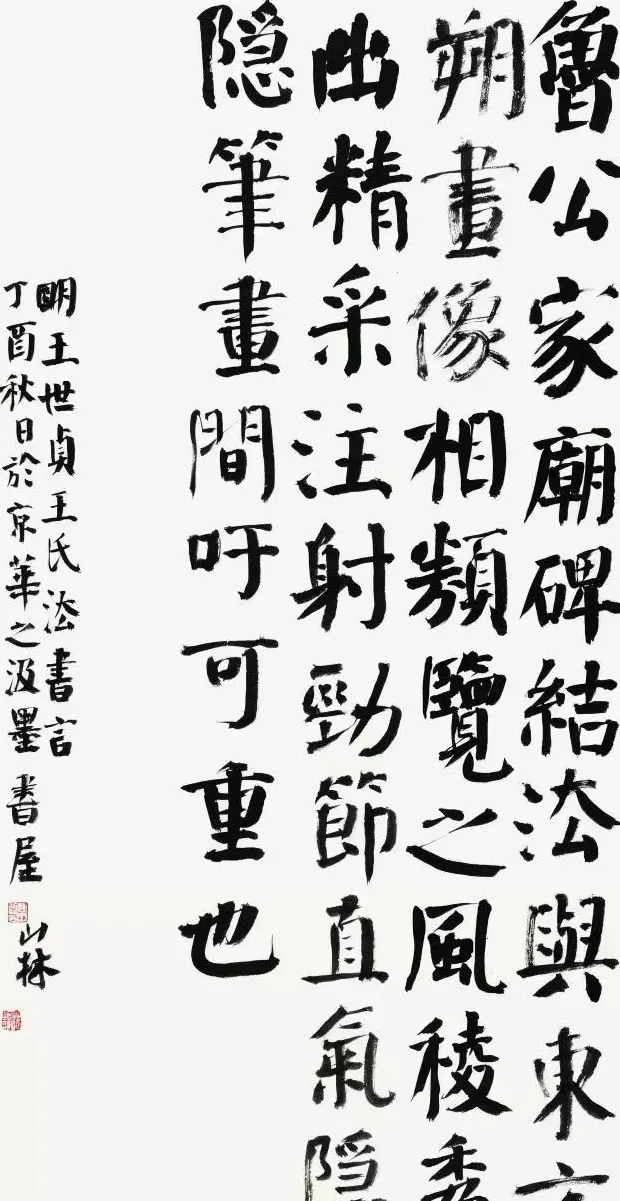 魯公家廟碑結法與東方
朔畫像相類覽之風稜秀
出精采注射勁節直氣隱
隱筆畫間吁可重也
明王世貞王氏法書言
丁酉秋日於京華之汲墨書屋 山林